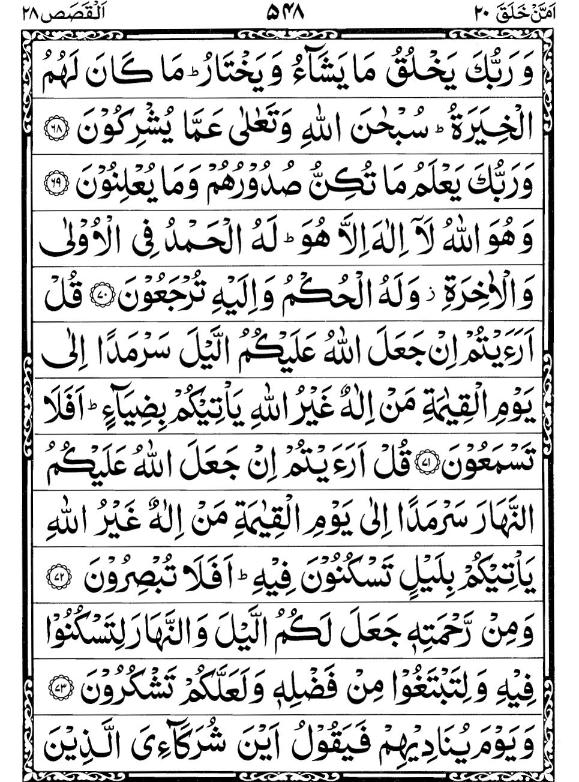 اَمَّنْ خَلَقَ ٢٠ ۵۴۸ اَلْقَصَص ٢٨
وَ رَبُّكَ يَخْلُقُ مَا يَشَآءُ وَ يَخْتَارُ ؕ مَا كَانَ لَهُمُ
الْخِيَرَةُ ؕ سُبْحٰنَ اللّٰهِ وَتَعٰلٰى عَمَّا يُشْرِكُوْنَ ﴿۶۸﴾
وَرَبُّكَ يَعْلَمُ مَا تُكِنُّ صُدُوْرُهُمْ وَمَا يُعْلِنُوْنَ ﴿۶۹﴾
وَهُوَ اللّٰهُ لَاۤ اِلٰهَ اِلَّا هُوَ ؕ لَهُ الْحَمْدُ فِى الْاُوْلٰى
وَالْاٰخِرَةِ ز وَلَهُ الْحُكْمُ وَاِلَيْهِ تُرْجَعُوْنَ ﴿۷۰﴾ قُلْ
اَرَءَيْتُمْ اِنْ جَعَلَ اللّٰهُ عَلَيْكُمُ الَّيْلَ سَرْمَدًا اِلٰى
يَوْمِ الْقِيٰمَةِ مَنْ اِلٰهٌ غَيْرُ اللّٰهِ يَاْتِيْكُمْ بِضِيَآءٍ ؕ اَفَلَا
تَسْمَعُوْنَ ﴿۷۱﴾ قُلْ اَرَءَيْتُمْ اِنْ جَعَلَ اللّٰهُ عَلَيْكُمُ
النَّهَارَ سَرْمَدًا اِلٰى يَوْمِ الْقِيٰمَةِ مَنْ اِلٰهٌ غَيْرُ اللّٰهِ
يَاْتِيْكُمْ بِلَيْلٍ تَسْكُنُوْنَ فِيْهِ ؕ اَفَلَا تُبْصِرُوْنَ ﴿۷۲﴾
وَمِنْ رَّحْمَتِهٖ جَعَلَ لَكُمُ الَّيْلَ وَالنَّهَارَ لِتَسْكُنُوْا
فِيْهِ وَلِتَبْتَغُوْا مِنْ فَضْلِهٖ وَلَعَلَّكُمْ تَشْكُرُوْنَ ﴿۷۳﴾
وَيَوْمَ يُنَادِيْهِمْ فَيَقُوْلُ اَيْنَ شُرَكَآءِىَ الَّذِيْنَ